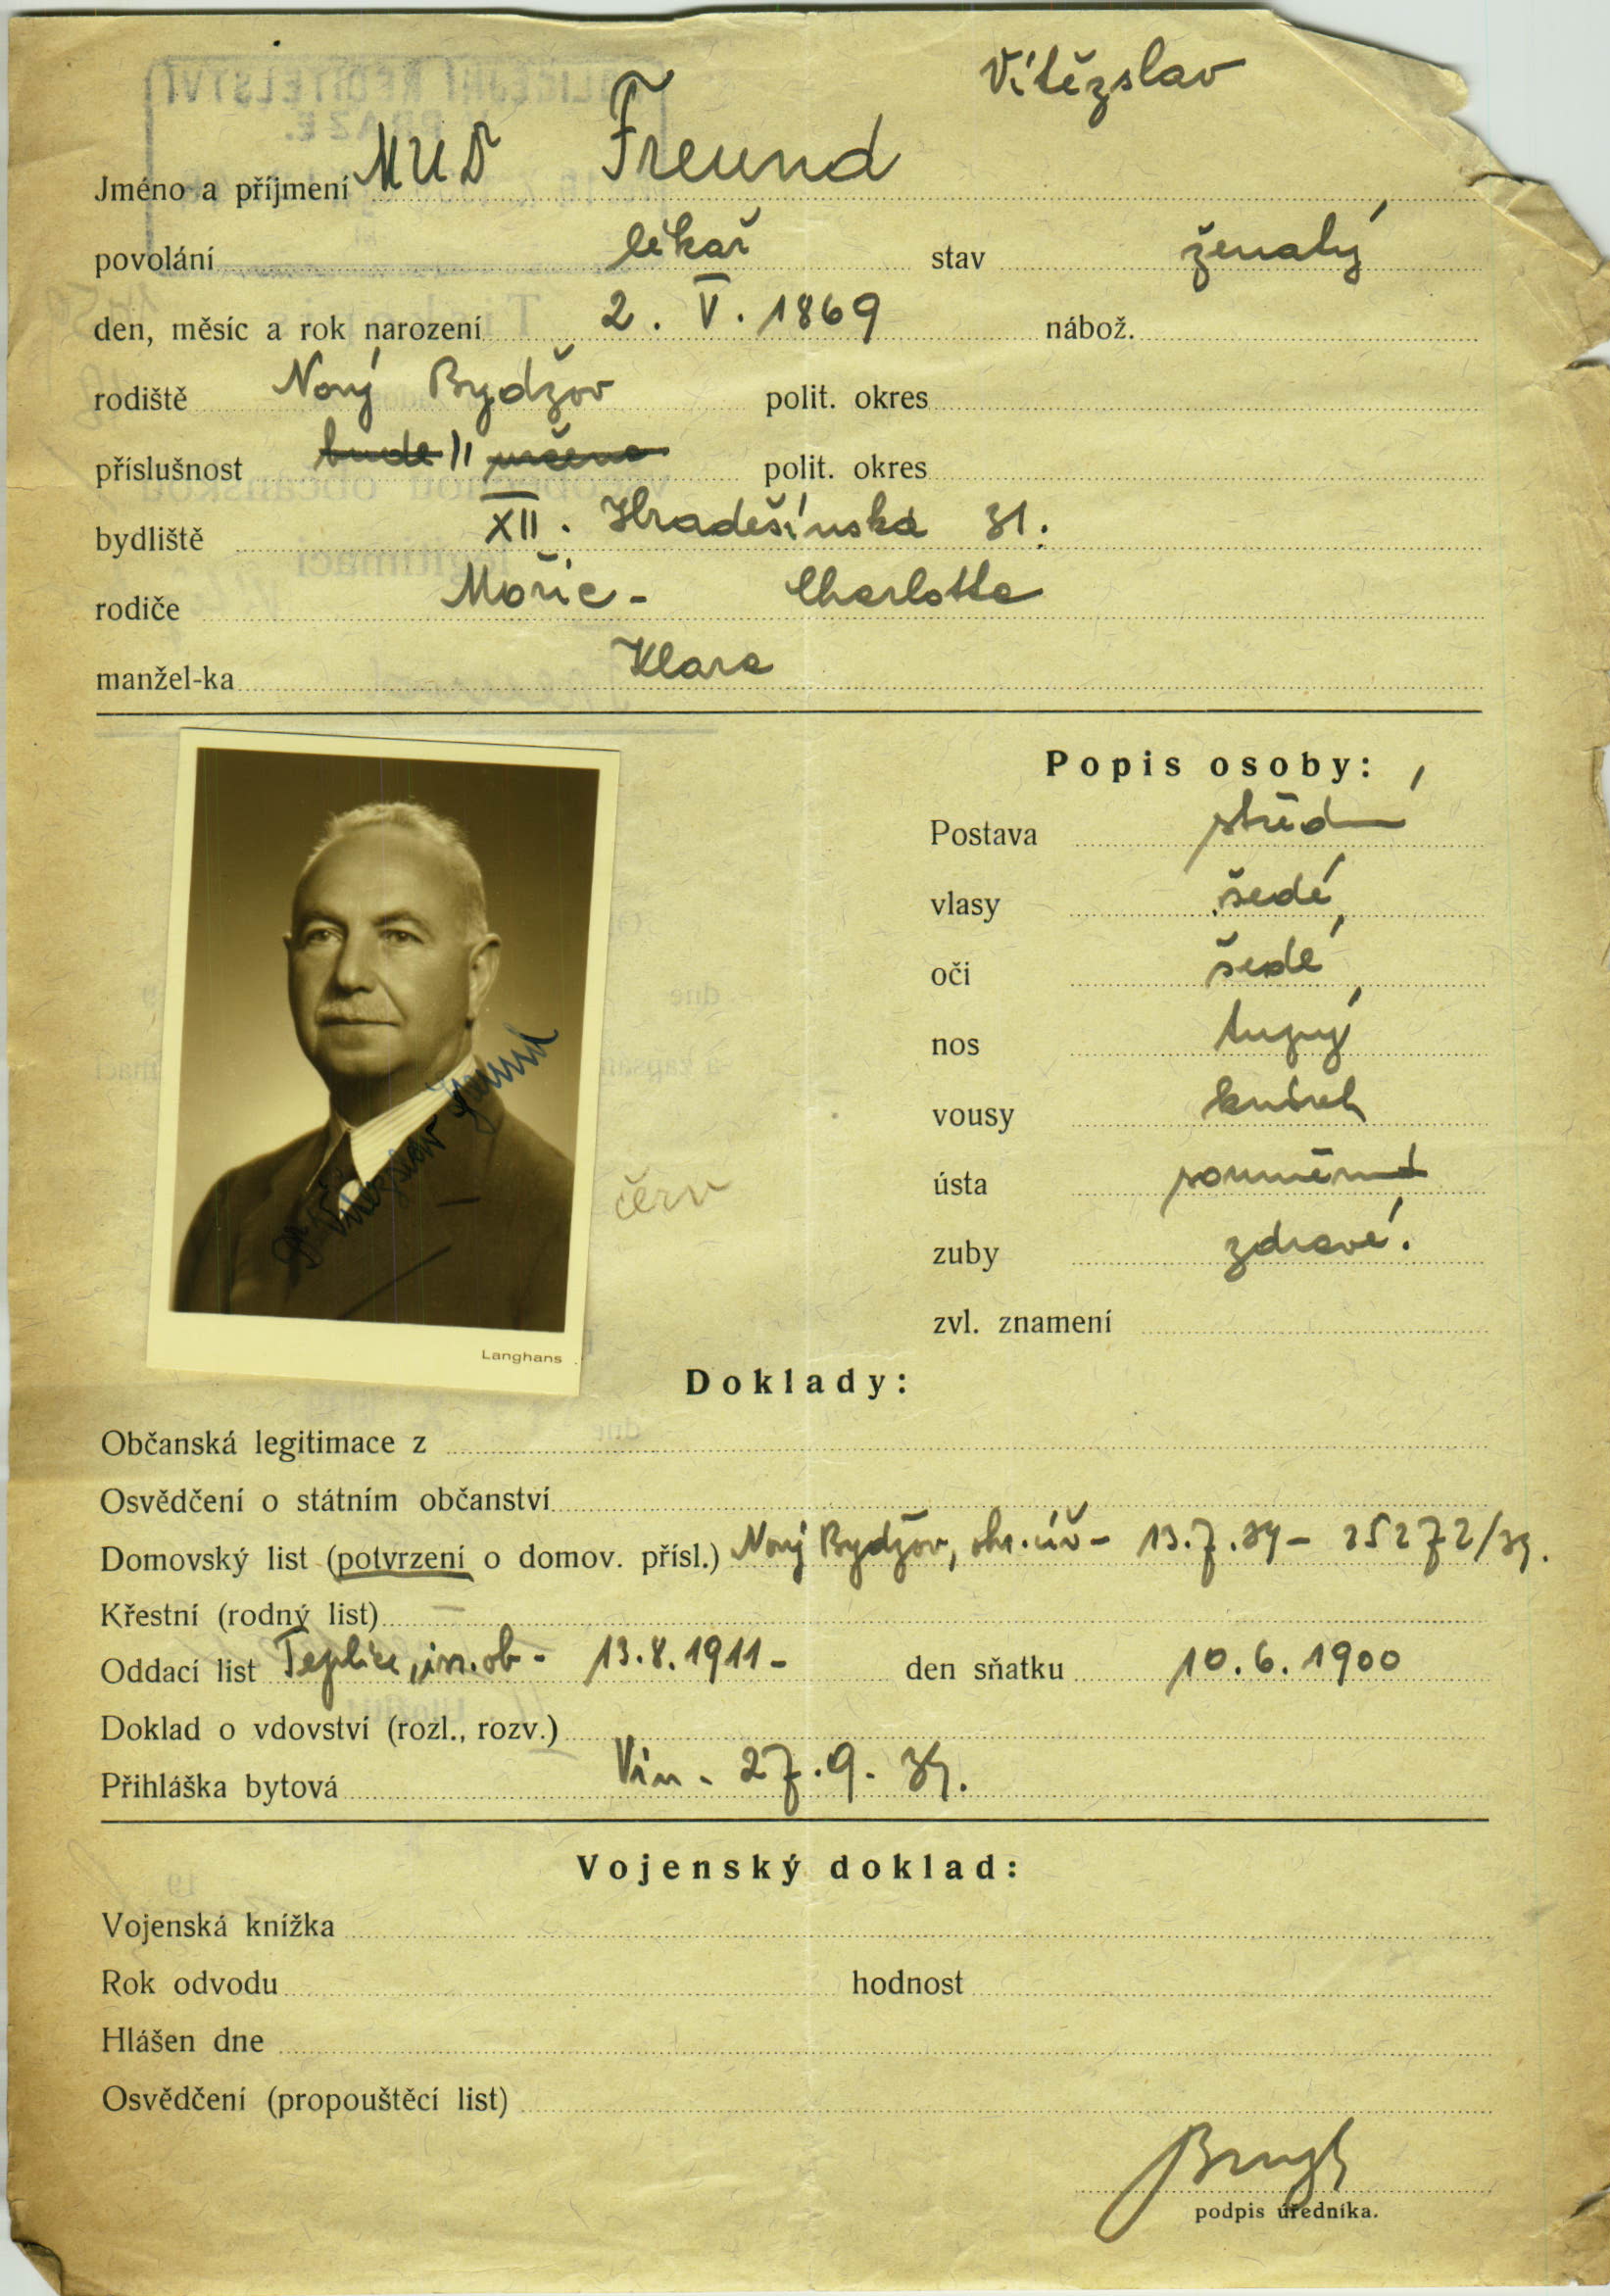 Vítězslav
Jméno a příjmení MUDr Freund
povolání lékař stav ženatý
den, měsíc a rok narození 2. V. 1869 nábož.
rodiště Nový Bydžov polit. okres
příslušnost bude určena polit. okres
bydliště XII. Hradešínská 31.
rodiče Mořic - Charlotta
manžel-ka Klara
Popis osoby:
Postava střední
vlasy šedé
oči šedé
nos tupý
vousy knírek
červ
ústa souměrná
zuby zdravé.
zvl. znamení
Dr Vítězslav Freund
Langhans
Doklady:
Občanská legitimace z
Osvědčení o státním občanství
Domovský list (potvrzení o domov. přísl.) Nový Bydžov, okr. úř - 13.7.39 - 25272/39.
Křestní (rodný list) —
Oddací list Teplice, isr. ob - 13.8.1911 - den sňatku 10.6.1900
Doklad o vdovství (rozl., rozv.)
Přihláška bytová Vin. 27.9.39.
Vojenský doklad:
Vojenská knížka
Rok odvodu hodnost
Hlášen dne
Osvědčení (propouštěcí list)
podpis úředníka.